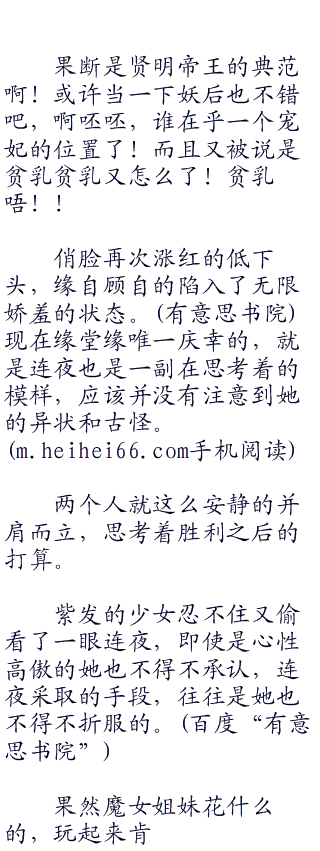 果断是贤明帝王的典范
啊！或许当一下妖后也不错
吧，啊呸呸，谁在乎一个宠
妃的位置了！而且又被说是
贫乳贫乳又怎么了！贫乳
唔！！
俏脸再次涨红的低下
头，缘自顾自的陷入了无限
娇羞的状态。(有意思书院)
现在缘堂缘唯一庆幸的，就
是连夜也是一副在思考着的
模样，应该并没有注意到她
的异状和古怪。
(m.heihei66.com手机阅读)
两个人就这么安静的并
肩而立，思考着胜利之后的
打算。
紫发的少女忍不住又偷
看了一眼连夜，即使是心性
高傲的她也不得不承认，连
夜采取的手段，往往是她也
不得不折服的。(百度“有意
思书院”)
果然魔女姐妹花什么
的，玩起来肯